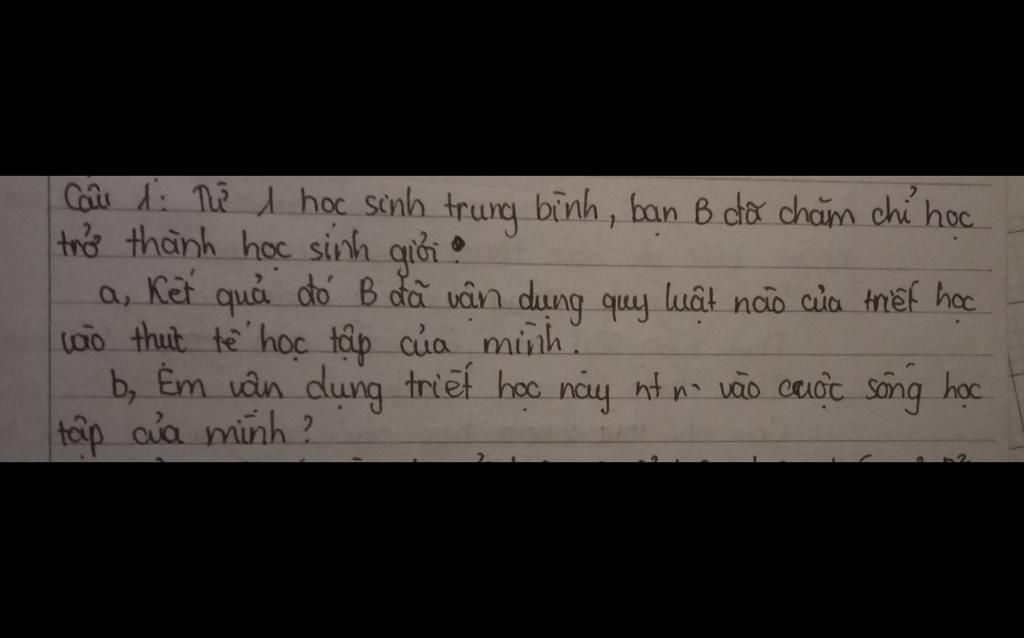 Câu 1: Từ 1 học sinh trung bình, bạn B đã chăm chỉ học
trở thành học sinh giỏi.
a, Kết quả đó B đã vận dụng quy luật nào của triết học
vào thực tế học tập của mình.
b, Em vân dụng triết học này ntn vào cuộc sống học
tập của mình?